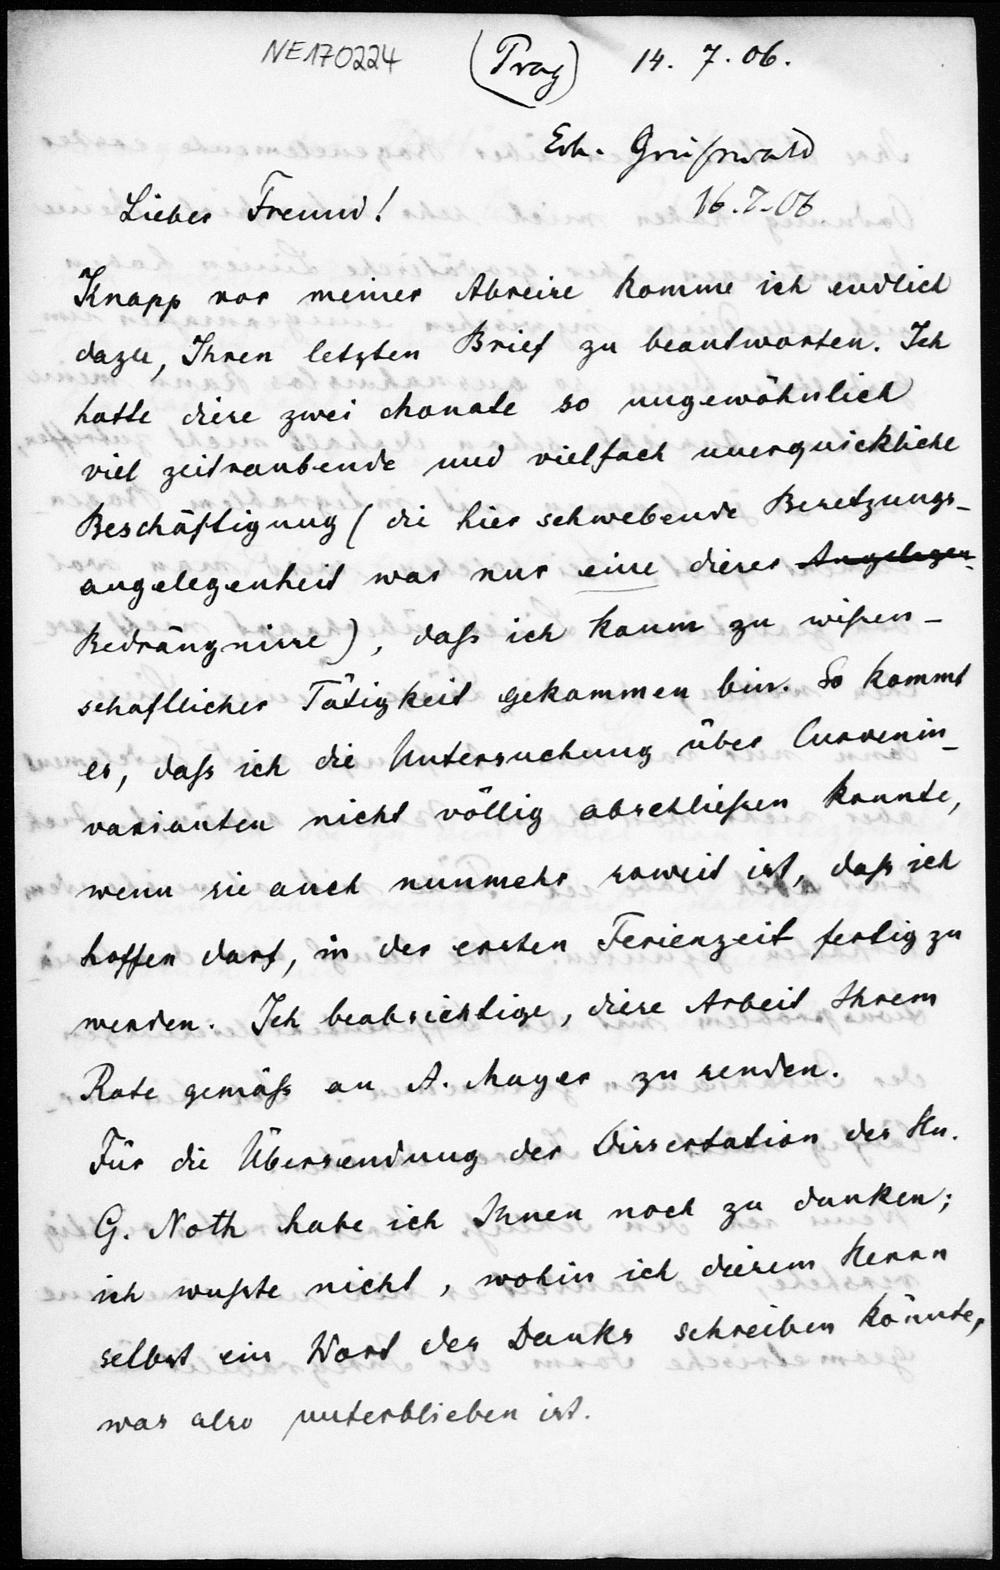 NE170224 (Prag) 14. 7. 06.
Erh. Greifswald
16.7.06
Lieber Freund!
Knapp vor meiner Abreise komme ich endlich
dazu, Ihren letzten Brief zu beantworten. Ich
hatte diese zwei Monate so ungewöhnlich
viel zeitraubende und vielfach unerquickliche
Beschäftigung (die hier schwebende Besetzungs-
angelegenheit war nur eine dieser Angelegen-
Bedrängnisse), daß ich kaum zu wißen-
schaftlicher Tätigkeit gekommen bin. So kommt
es, daß ich die Untersuchung über Curvenin-
varianten nicht völlig abschließen konnte,
wenn sie auch nunmehr soweit ist, daß ich
hoffen darf, in der ersten Ferienzeit fertig zu
werden. Ich beabsichtige, diese Arbeit Ihrem
Rate gemäß an A. Mayer zu senden.
Für die Übersendung der Dissertation des Hn.
G. Noth habe ich Ihnen noch zu danken;
ich wußte nicht, wohin ich diesem Herrn
selbst ein Wort des Danks schreiben könnte,
was also unterblieben ist.